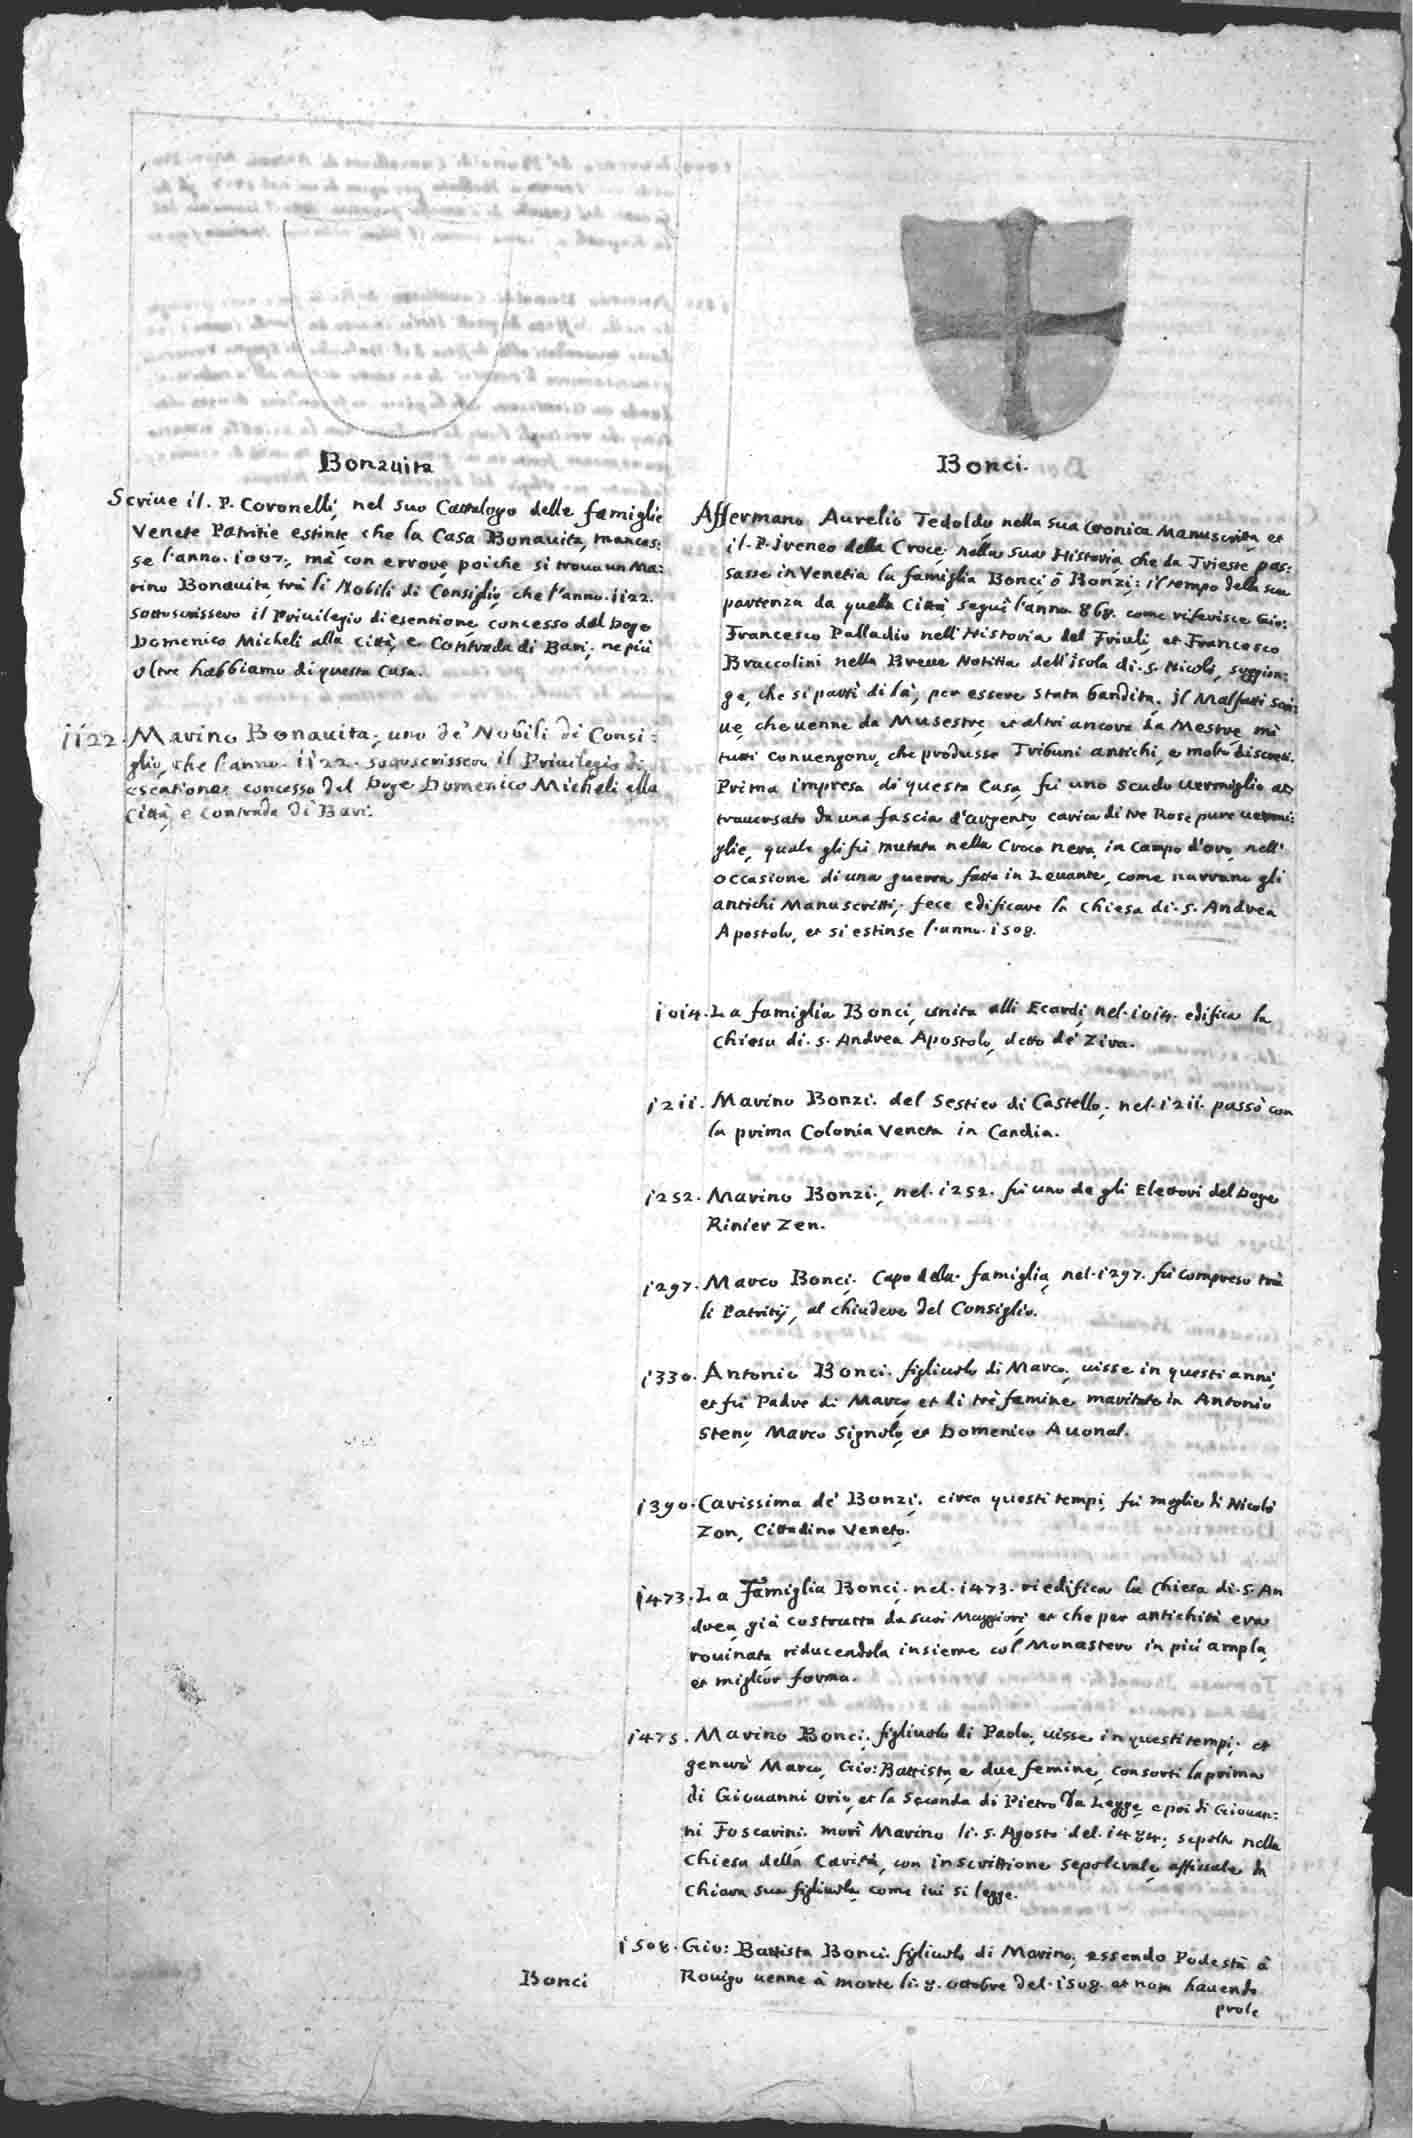 Bonauita
Scriue il. P. Coronelli, nel suo Catalogo delle famiglie
Venete Patritie estinte, che la Casa Bonauita, mancas:
se l'anno. 1007., mà con errore, poiche si troua un Ma:
rino Bonauita, trà li Nobili di Consiglio, che l'anno. 1122.
sottoscrissero il Priuilegio di esentione, concesso dal Doge
Domenico Micheli alla città, e Contrada di Bari; ne più
oltre habbiamo di questa Casa.
1122. Marino Bonauita, uno de' Nobili di Consi:
glio, che l'anno. 1122. sottoscrissero il Priuilegio di
esentione, concesso del Doge Domenico Micheli alla
Città, e contrada di Bari.
Bonci.
Affermano Aurelio Tedoldo, nella sua Cronica Manuscritta, et
il. P. Ireneo della Croce, nella sua Historia, che da Trieste pas:
sasse in Venetia la famiglia Bonci, ò Bonzi; il tempo della sua
partenza da quella Città, seguì l'anno. 868. come riferisce Gio:
Francesco Palladio nell'Historia del Friuli, et Francesco
Braccolini nella Breue Notitia dell'Isola di. S. Nicolò, soggion:
ge, che si partì di là, per essere stata bandita. Il Malfatti scri:
ue, che uenne da Musestre, et altri ancora da Mestre, mà
tutti conuengono, che produsse Tribuni antichi, e molto discreti.
Prima impresa di questa Casa, fù uno scudo uermiglio at:
trauersato da una fascia d'argento, carica di tre Rose pure uermi:
glie, quale gli fù mutata nella Croce nera, in campo d'oro, nell'
occasione di una guerra fatta in Leuante, come narrano gli
antichi Manuscritti; fece edificare la Chiesa di. S. Andrea
Apostolo, et si estinse l'anno. 1508.
1014. La famiglia Bonci, unita alli Ecardi, nel. 1014. edifica la
Chiesa di. S. Andrea Apostolo, detto de' Zira.
1211. Marino Bonzi. del Sestier di Castello, nel. 1211. passò con
la prima Colonia Veneta in Candia.
1252. Marino Bonzi, nel. 1252. fù uno de gli Elettori del Doge
Rinier Zen.
1297. Marco Bonci. Capo della famiglia, nel. 1297. fù compreso trà
li Patritij, al chiudere del Consiglio.
1330. Antonio Bonci. figliuolo di Marco, uisse in questi anni,
et fù Padre di Marco, et di trè femine, maritate in Antonio
Steno, Marco Signolo, et Domenico Auonal.
1390. Carissima de' Bonzi, circa questi tempi, fù moglie di Nicolò
Zon, Cittadino Veneto.
1473. La Famiglia Bonci, nel. 1473. riedifica la Chiesa di. S. An
drea, già costrutta da suoi Maggiori, et che per antichità era
rouinata, riducendola insieme col Monastero in più ampla,
et miglior forma.
1475. Marino Bonci. figliuolo di Paolo, uisse in questi tempi, et
generò Marco, Gio: Battista, e due femine, consorti la prima
di Giouanni Orio, et la Seconda di Pietro Da Legge, e poi di Giouan:
ni Foscarini. morì Marino li. 5. Agosto del. 1484. sepolto nella
Chiesa della Carità, con inscrittione sepolcrale, affissale da
Chiara sua figliuola, come iui si legge.
1508. Gio: Battista Bonci. figliuolo di Marino, essendo Podestà à
Rouigo uenne à morte li. 8. ottobre del. 1508. et non hauendo
prole
Bonci